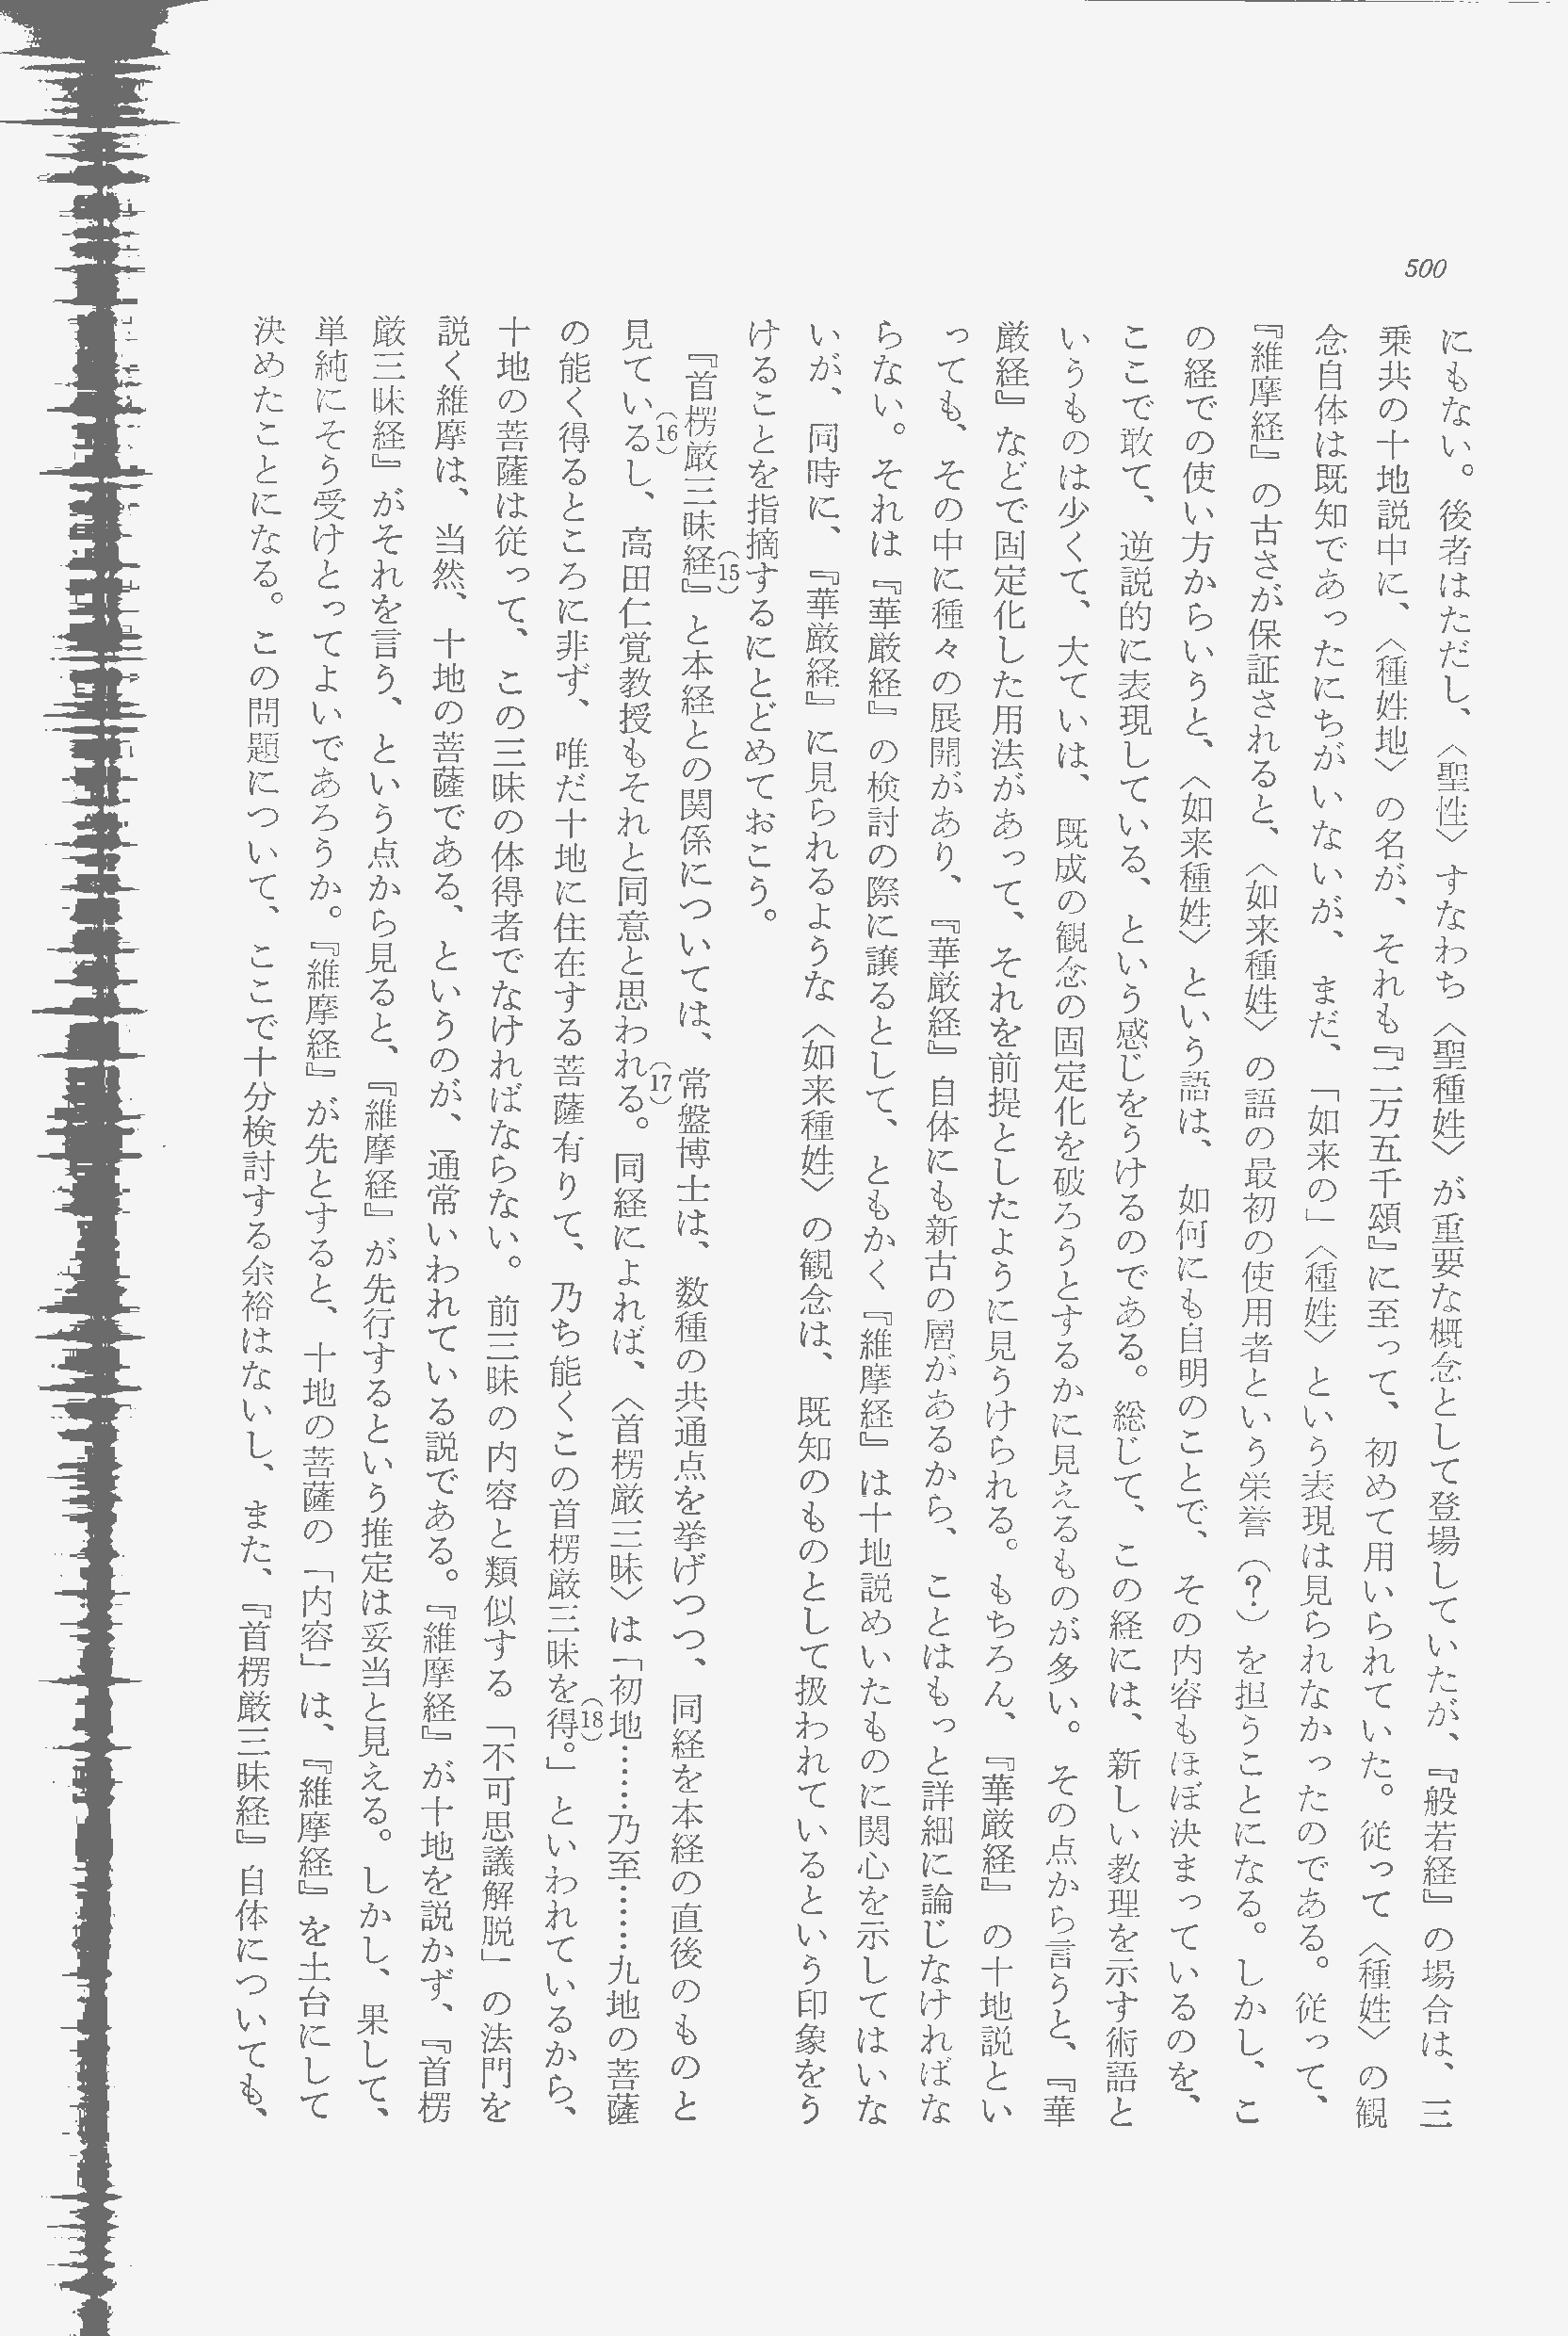 500
にもない。後者はただし、〈聖性〉すなわち〈聖種姓〉が重要な概念として登場していたが、『般若経』の場合は、三
乗共の十地説中に、〈種姓地〉の名が、それも『二万五千頌』に至って、初めて用いられていた。従って〈種姓〉の観
念自体は既知であったにちがいないが、まだ、「如来の」〈種姓〉という表現は見られなかったのである。従って、
『維摩経』の古さが保証されると、〈如来種姓〉の語の最初の使用者という栄誉（？）を担うことになる。しかし、こ
の経での使い方からいうと、〈如来種姓〉という語は、如何にも自明のことで、その内容もほぼ決まっているのを、
ここで敢て、逆説的に表現している、という感じをうけるのである。総じて、この経には、新しい教理を示す術語と
いうものは少くて、大ていは、既成の観念の固定化を破ろうとするかに見えるものが多い。その点から言うと、『華
厳経』などで固定化した用法があって、それを前提としたように見うけられる。もちろん、『華厳経』の十地説とい
っても、その中に種々の展開があり、『華厳経』自体にも新古の層があるから、ことはもっと詳細に論じなければな
らない。それは『華厳経』の検討の際に譲るとして、ともかく『維摩経』は十地説めいたものに関心を示してはいな
いが、同時に、『華厳経』に見られるような〈如来種姓〉の観念は、既知のものとして扱われているという印象をう
けることを指摘するにとどめておこう。
『首楞厳三昧経』(15)と本経との関係については、常盤博士は、数種の共通点を挙げつつ、同経を本経の直後のものと
見ている(16)し、高田仁覚教授もそれと同意と思われる(17)。同経によれば、〈首楞厳三昧〉は「初地……乃至……九地の菩薩
の能く得るところに非ず、唯だ十地に住在する菩薩有りて、乃ち能くこの首楞厳三昧を得(18)。」といわれているから、
十地の菩薩は従って、この三昧の体得者でなければならない。前三昧の内容と類似する「不可思議解脱」の法門を
説く維摩は、当然、十地の菩薩である、というのが、通常いわれている説である。『維摩経』が十地を説かず、『首楞
厳三昧経』がそれを言う、という点から見ると、『維摩経』が先行するという推定は妥当と見える。しかし、果して、
単純にそう受けとってよいであろうか。『維摩経』が先とすると、十地の菩薩の「内容」は、『維摩経』を土台にして
決めたことになる。この問題について、ここで十分検討する余裕はないし、また、『首楞厳三昧経』自体についても、